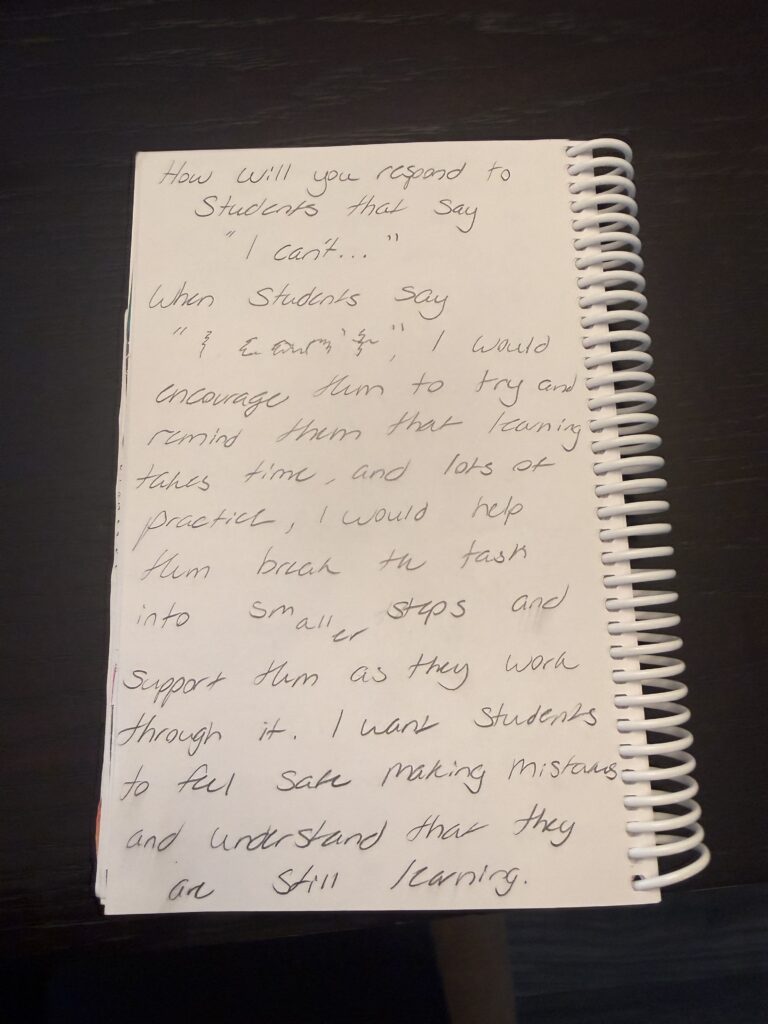 How will you respond to
Students that say
"I can't..."
When students say
"I can't", I would
encourage them to try and
remind them that learning
takes time, and lots of
practice, I would help
them break the task
into smaller steps and
support them as they work
through it. I want students
to feel safe making mistakes
and understand that they
are still learning.